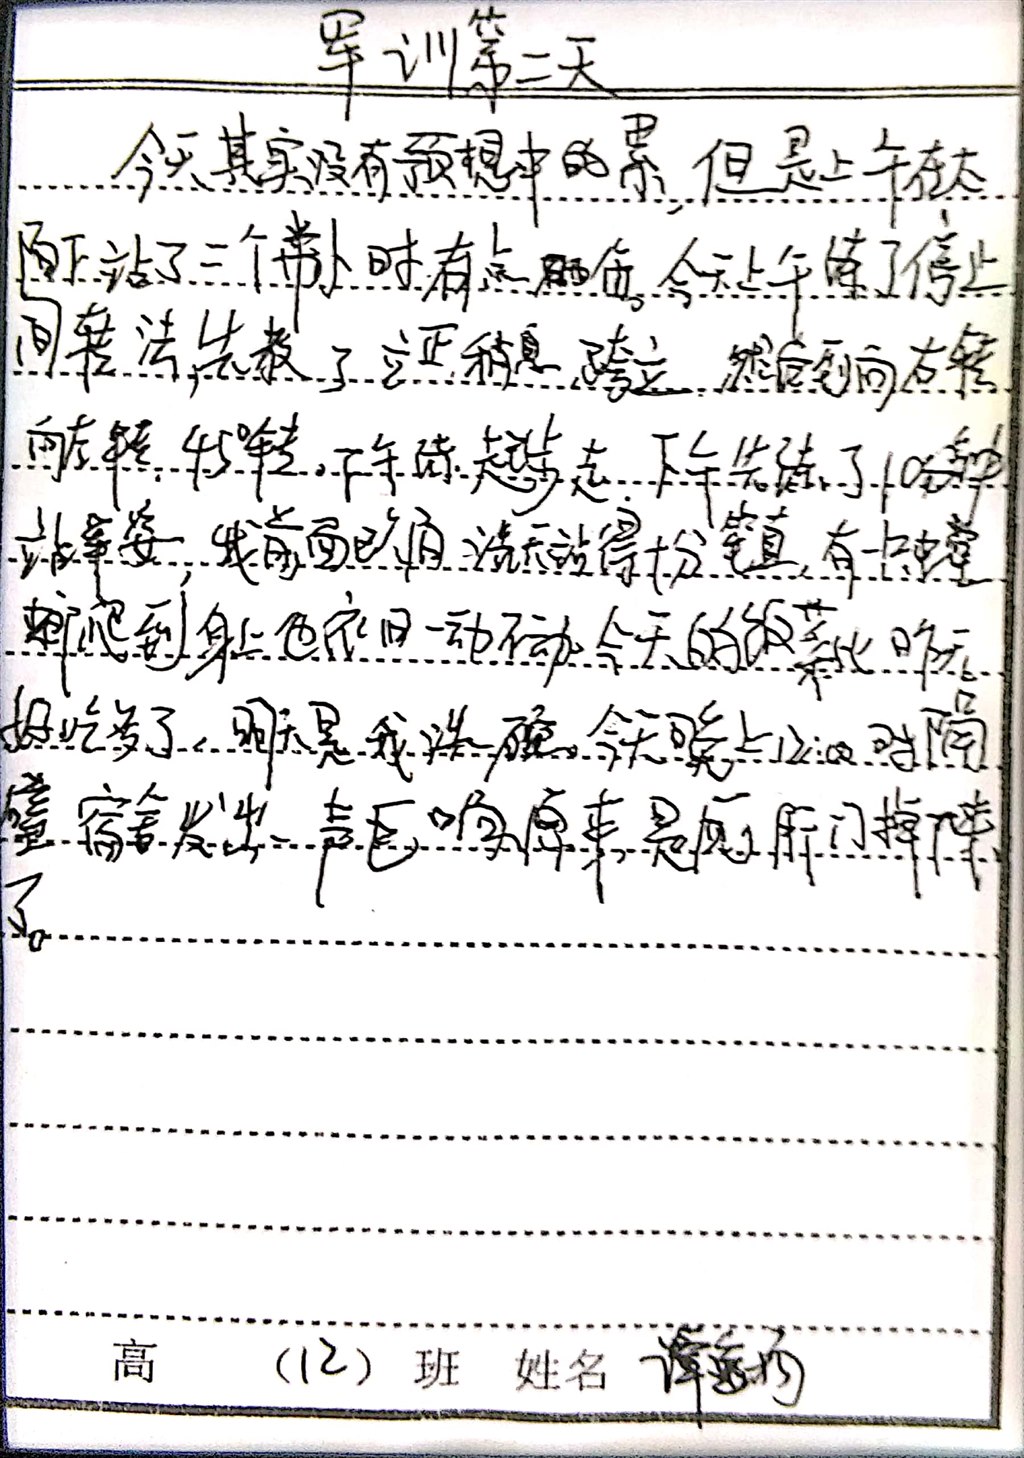 军训第二天
今天其实没有预想中的累,但是上午在太
阳下站了三个半小时有点晒伤。今天上午练了停止
间转法,先教了立正稍息跨立,然后到向右转
向左转,45°转。下午练起步走,下午先练了10分钟
站军姿,我前面 站得十分笔直,有一只蟑
螂爬到身上也依旧一动不动。今天的饭菜比昨天
好吃多了,明天是我洗碗。今天晚上12:00时隔
壁宿舍发出一声巨响原来是厕所门掉下来
了。
高 (12) 班 姓名 谭